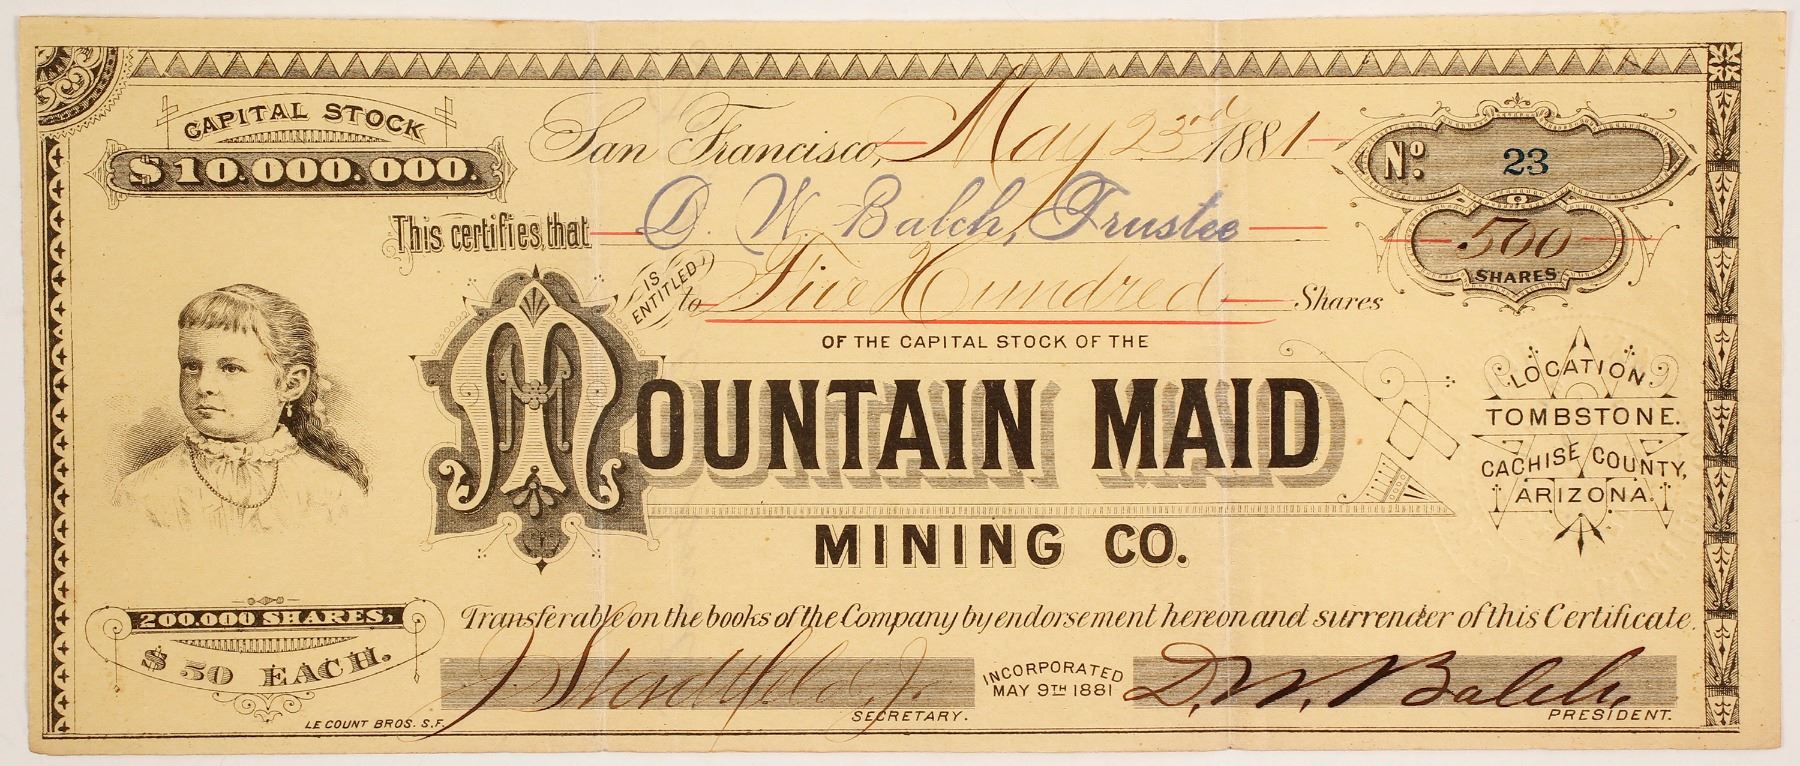 CAPITAL STOCK
$10.000.000.
San Francisco, May 23rd 1881
No. 23
This certifies, that D. W. Balch, Trustee
500
SHARES
IS ENTITLED to Five Hundred Shares
OF THE CAPITAL STOCK OF THE
MOUNTAIN MAID
MINING CO.
LOCATION
TOMBSTONE.
CACHISE COUNTY,
ARIZONA.
200.000 SHARES,
$50 EACH.
Transferable on the books of the Company by endorsement hereon and surrender of this Certificate.
J Stadtfeld, Jr.
SECRETARY.
INCORPORATED
MAY 9TH 1881
D. W. Balch,
PRESIDENT.
LE COUNT BROS. S.F.